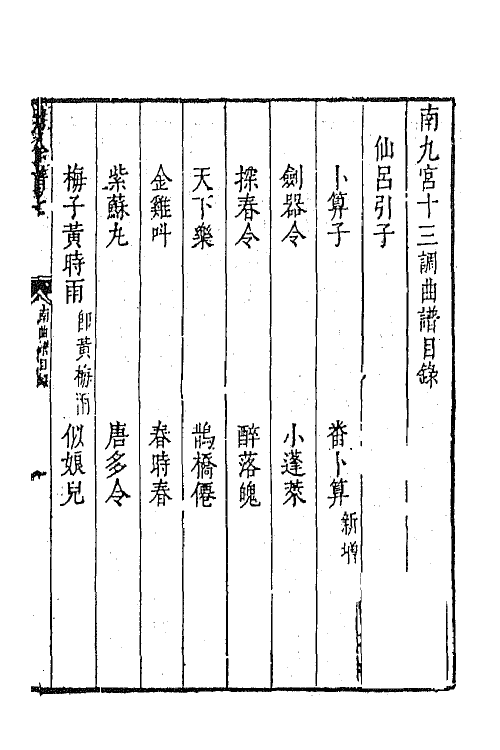 南九宮十三調曲譜目錄
仙呂引子
卜算子　番卜算新增
劍器令　小蓬萊
探春令　醉落魄
天下樂　鵲橋僊
金雞叫　春時春
紫蘇丸　唐多令
梅子黃時雨即黃梅雨　似娘兒
南曲譜目錄